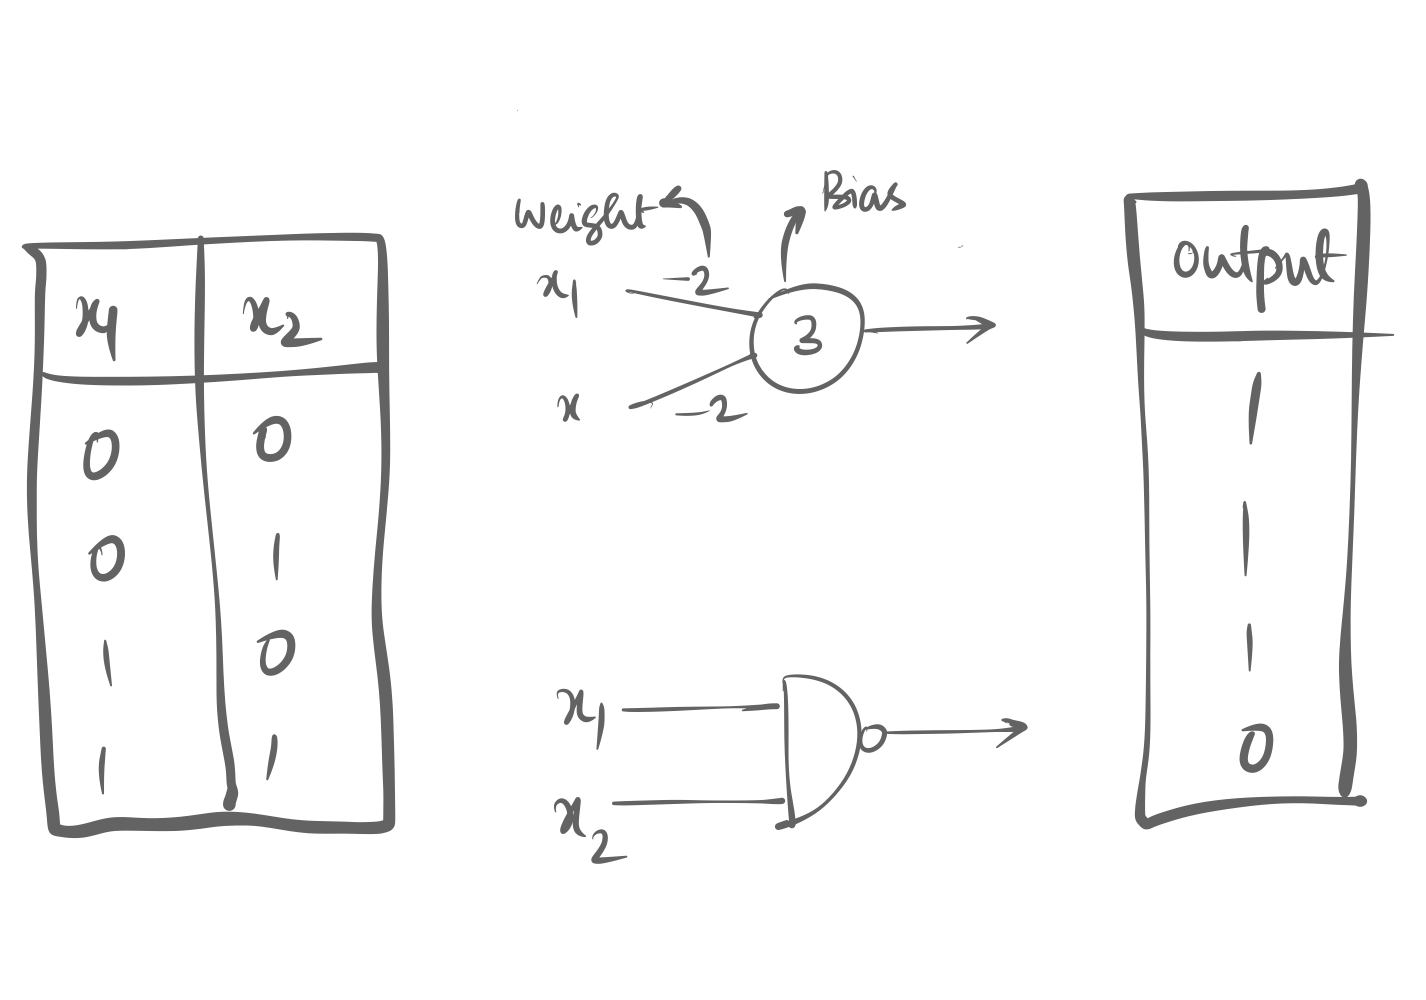 x1 x2
0 0
0 1
1 0
1 1
Weight Bias
x1 -2
3
x -2
x1
x2
output
1
1
1
0